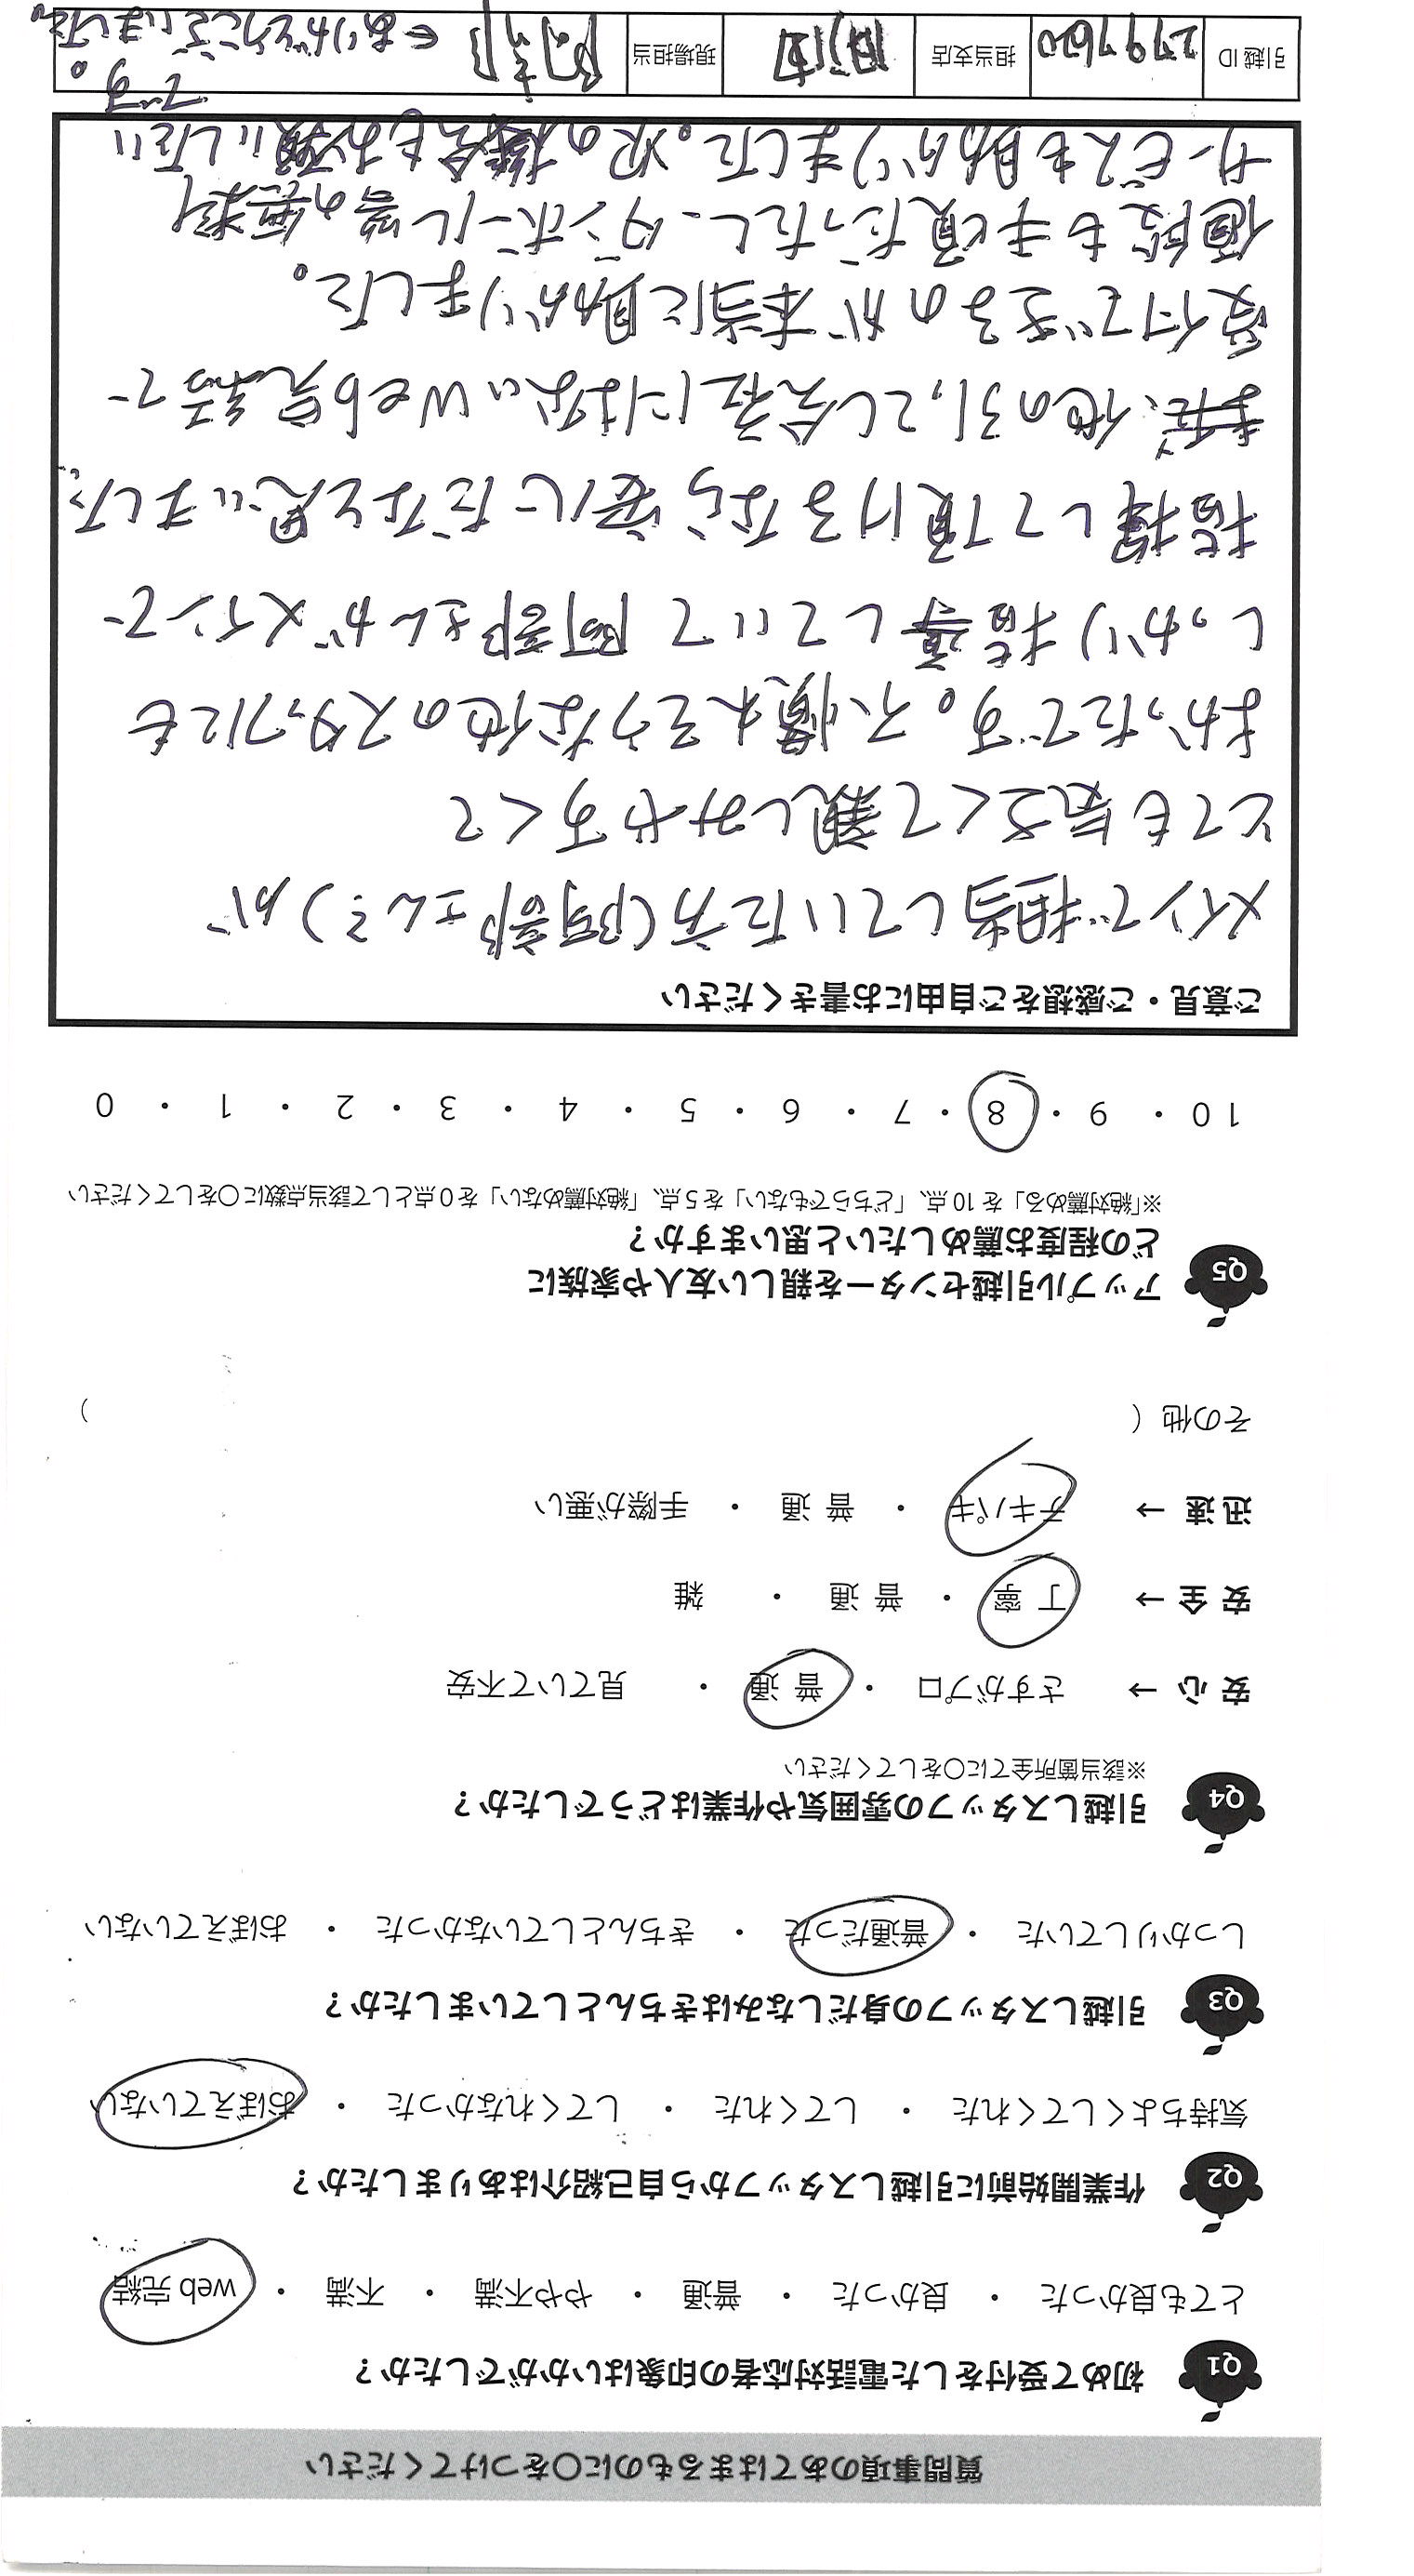 質問事項のあてはまるものに〇をつけてください
Q1 初めて受付をした電話対応者の印象はいかがでしたか？
とても良かった ・ 良かった ・ 普通 ・ やや不満 ・ 不満 ・ web完結
Q2 作業開始前に引越しスタッフから自己紹介はありましたか？
気持ちよくしてくれた ・ してくれた ・ してくれなかった ・ おぼえていない
Q3 引越しスタッフの身だしなみはきちんとしていましたか？
しっかりしていた ・ 普通だった ・ きちんとしていなかった ・ おぼえていない
Q4 引越しスタッフの雰囲気や作業はどうでしたか？
※該当箇所全てに〇をしてください
安心 → さすがプロ ・ 普通 ・ 見ていて不安
安全 → 丁寧 ・ 普通 ・ 雑
迅速 → テキパキ ・ 普通 ・ 手際が悪い
その他（ ）
Q5 アップル引越センターを親しい友人や家族に
どの程度お薦めしたいと思いますか？
※「絶対薦める」を10点、「どちらでもない」を5点、「絶対薦めない」を0点として該当点数に〇をしてください
10 ・ 9 ・ 8 ・ 7 ・ 6 ・ 5 ・ 4 ・ 3 ・ 2 ・ 1 ・ 0
ご意見・ご感想をご自由にお書きください
メインで担当していた方(阿部さん?)が
とても気さくて親しみやすくて
よかったです。不慣れそうな他のスタッフにも
しっかり指導していて阿部さんがメインで
指揮して頂けるなら安心だなと思いました。
また、他の引っこし会社にはないWeb見積で
受付できるのが本当に助かりました。
値段も手頃だったし、ダンボール等の無料
サービスも助かりました。次の機会もお願いしたい
です。
引越ID 2797620 担当支店 現場担当 阿部 ←ありがとうございました。